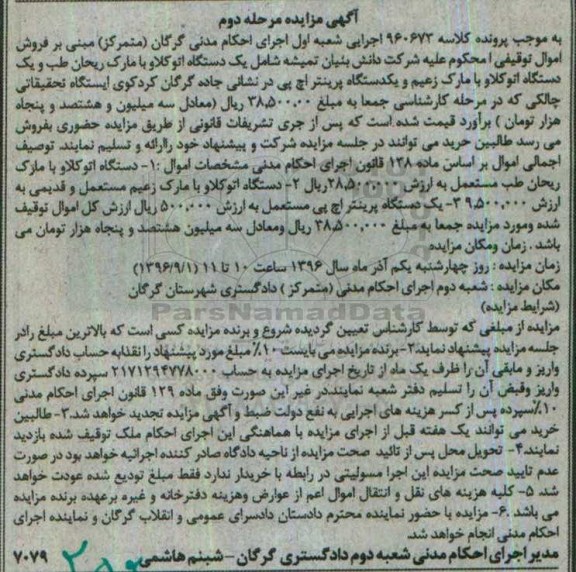 آگهی مزایده مرحله دوم
به موجب پرونده کلاسه ۹۶۰۶۷۳ اجرایی شعبه اول اجرای احکام مدنی گرگان (متمرکز) مبنی بر فروش
اموال توقیفی ا محکوم علیه شرکت دانش بنیان تمیشه شامل یک دستگاه اتوکلاو با مارک ریحان طب و یک
دستگاه اتوکلاو با مارک زعیم و یکدستگاه پرینتر اچ پی در نشانی جاده گرگان کردکوی ایستگاه تحقیقاتی
چالکی که در مرحله کارشناسی جمعا به مبلغ ۳۸,۵۰۰,۰۰ ریال (معادل سه میلیون و هشتصد و پنجاه
هزار تومان ) برآورد قیمت شده است که پس از جری تشریفات قانونی از طریق مزایده حضوری بفروش
می رسد طالبین خرید می توانند در جلسه مزایده شرکت و پیشنهاد خود راارائه و تسلیم نمایند. توصیف
اجمالی اموال بر اساس ماده ۱۳۸ قانون اجرای احکام مدنی مشخصات اموال :۱- دستگاه اتوکلاو با مارک
ریحان طب مستعمل به ارزش ۲۸,۵۰۰,۰۰۰ریال ۲- دستگاه اتوکلاو با مارک زعیم مستعمل و قدیمی به
ارزش ۹,۵۰۰,۰۰۰ ۳- یک دستگاه پرینتر اچ پی مستعمل به ارزش ۵۰۰,۰۰۰ ریال ارزش کل اموال توقیف
شده ومورد مزایده جمعا به مبلغ ۳۸,۵۰۰,۰۰۰ ریال ومعادل سه میلیون هشتصد و پنجاه هزار تومان می
باشد . زمان ومکان مزایده
زمان مزایده : روز چهارشنبه یکم آذر ماه سال ۱۳۹۶ ساعت ۱۰ تا ۱۱ (۱۳۹۶/۹/۱)
مکان مزایده : شعبه دوم اجرای احکام مدنی (متمرکز ) دادگستری شهرستان گرگان
ParsNamadData
(شرایط مزایده)
مزایده از مبلغی که توسط کارشناس تعیین گردیده شروع و برنده مزایده کسی است که بالاترین مبلغ رادر
جلسه مزایده پیشنهاد نماید.۲- برنده مزایده می بایست ۱۰٪ مبلغ مورد پیشنهاد را نقدابه حساب دادگستری
واریز و مابقی آن را ظرف یک ماه از تاریخ اجرای مزایده به حساب ۲۱۷۱۲۹۴۷۷۸۰۰۰ سپرده دادگستری
واریز وقبض آن را تسلیم دفتر شعبه نمایند.در غیر این صورت وفق ماده ۱۲۹ قانون اجرای احکام مدنی
۱۰٪سپرده پس از کسر هزینه های اجرایی به نفع دولت ضبط و آگهی مزایده تجدید خواهد شد.۳- طالبین
خرید می توانند یک هفته قبل از اجرای مزایده با هماهنگی این اجرای احکام ملک توقیف شده بازدید
نمایند.۴- تحویل محل پس از تائید صحت مزایده از ناحیه دادگاه صادر کننده اجرائیه خواهد بود در صورت
عدم تایید صحت مزایده این اجرا مسولیتی در رابطه با خریدار ندارد فقط مبلغ تودیع شده عودت خواهد
شد. ۵- کلیه هزینه های نقل و انتقال اموال اعم از عوارض وهزینه دفترخانه و غیره برعهده برنده مزایده
می باشد .۶- مزایده با حضور نماینده محترم دادستان دادسرای عمومی و انقلاب گرگان و نماینده اجرای
احکام مدنی انجام خواهد شد.
مدیر اجرای احکام مدنی شعبه دوم دادگستری گرگان - شبنم هاشمی ۷۰۷۹